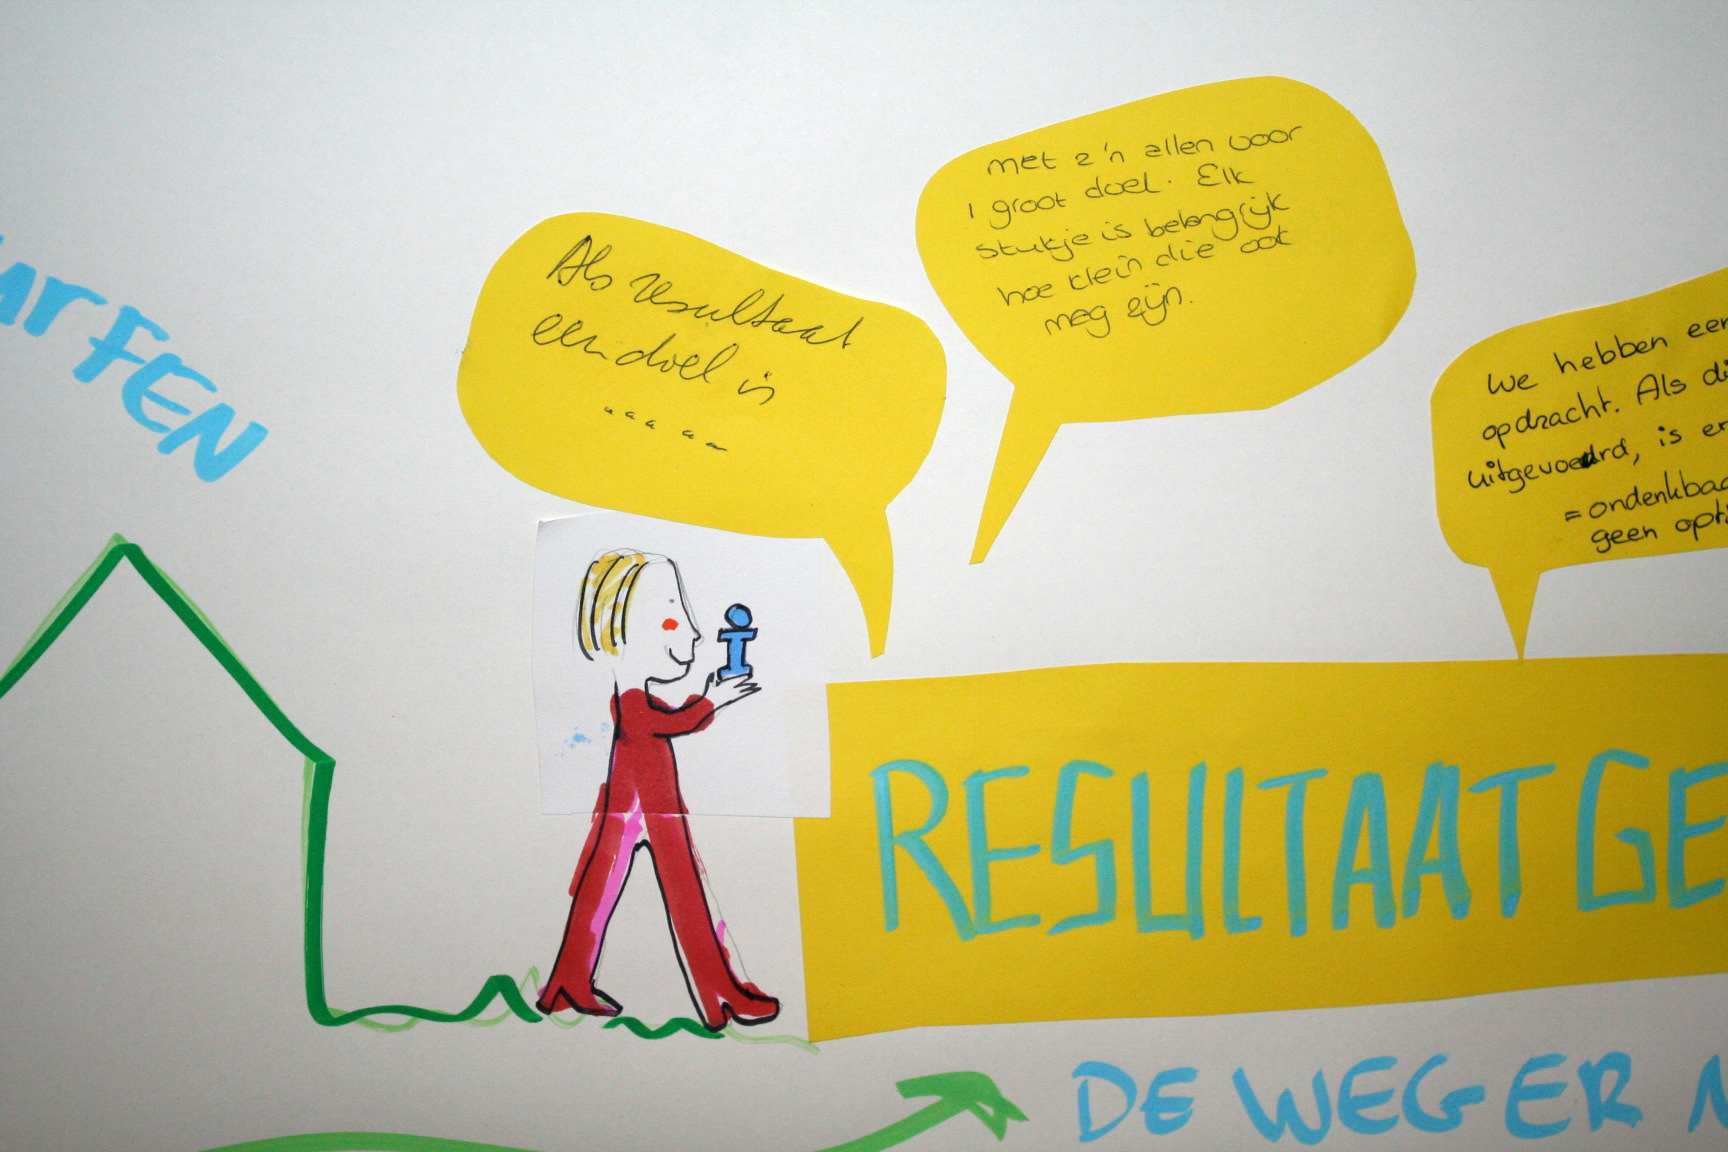 FEN
Als resultaat
een doel is
.....
met z'n allen voor
1 groot doel. Elk
stukje is belangrijk
hoe klein die ook
mag zijn.
We hebben een
opdracht. Als di
uitgevoerd, is er
= ondenkbaa
geen opti
i
RESULTAATGE
DE WEG ER N